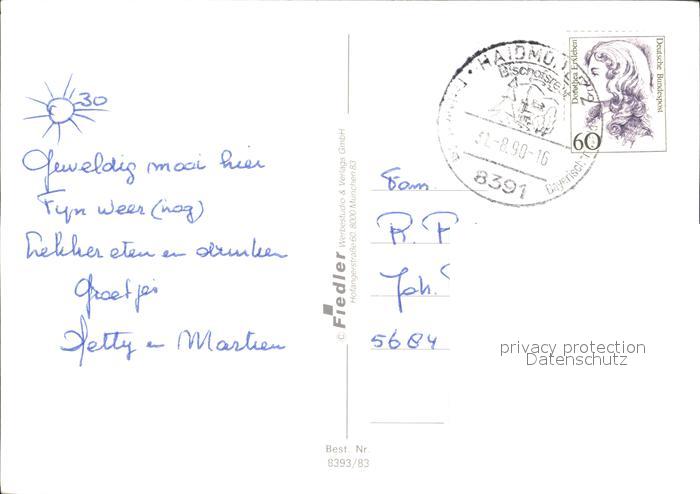 30
Geweldig mooi hier
Fijn weer (nog)
Lekker eten en drinken
Groetjes
Hetty en Martien
© Fiedler Werbestudio & Verlags GmbH
Hofangerstraße 60, 8000 München 83
Best. Nr.
8393/83
HAIDMÜ
Bischofsre
-8.90-16
8391
Bayerisch
Dorothea Erxleben
Deutsche Bundespost
60
Fam.
R. F
Joh.
5684
privacy protection
Datenschutz